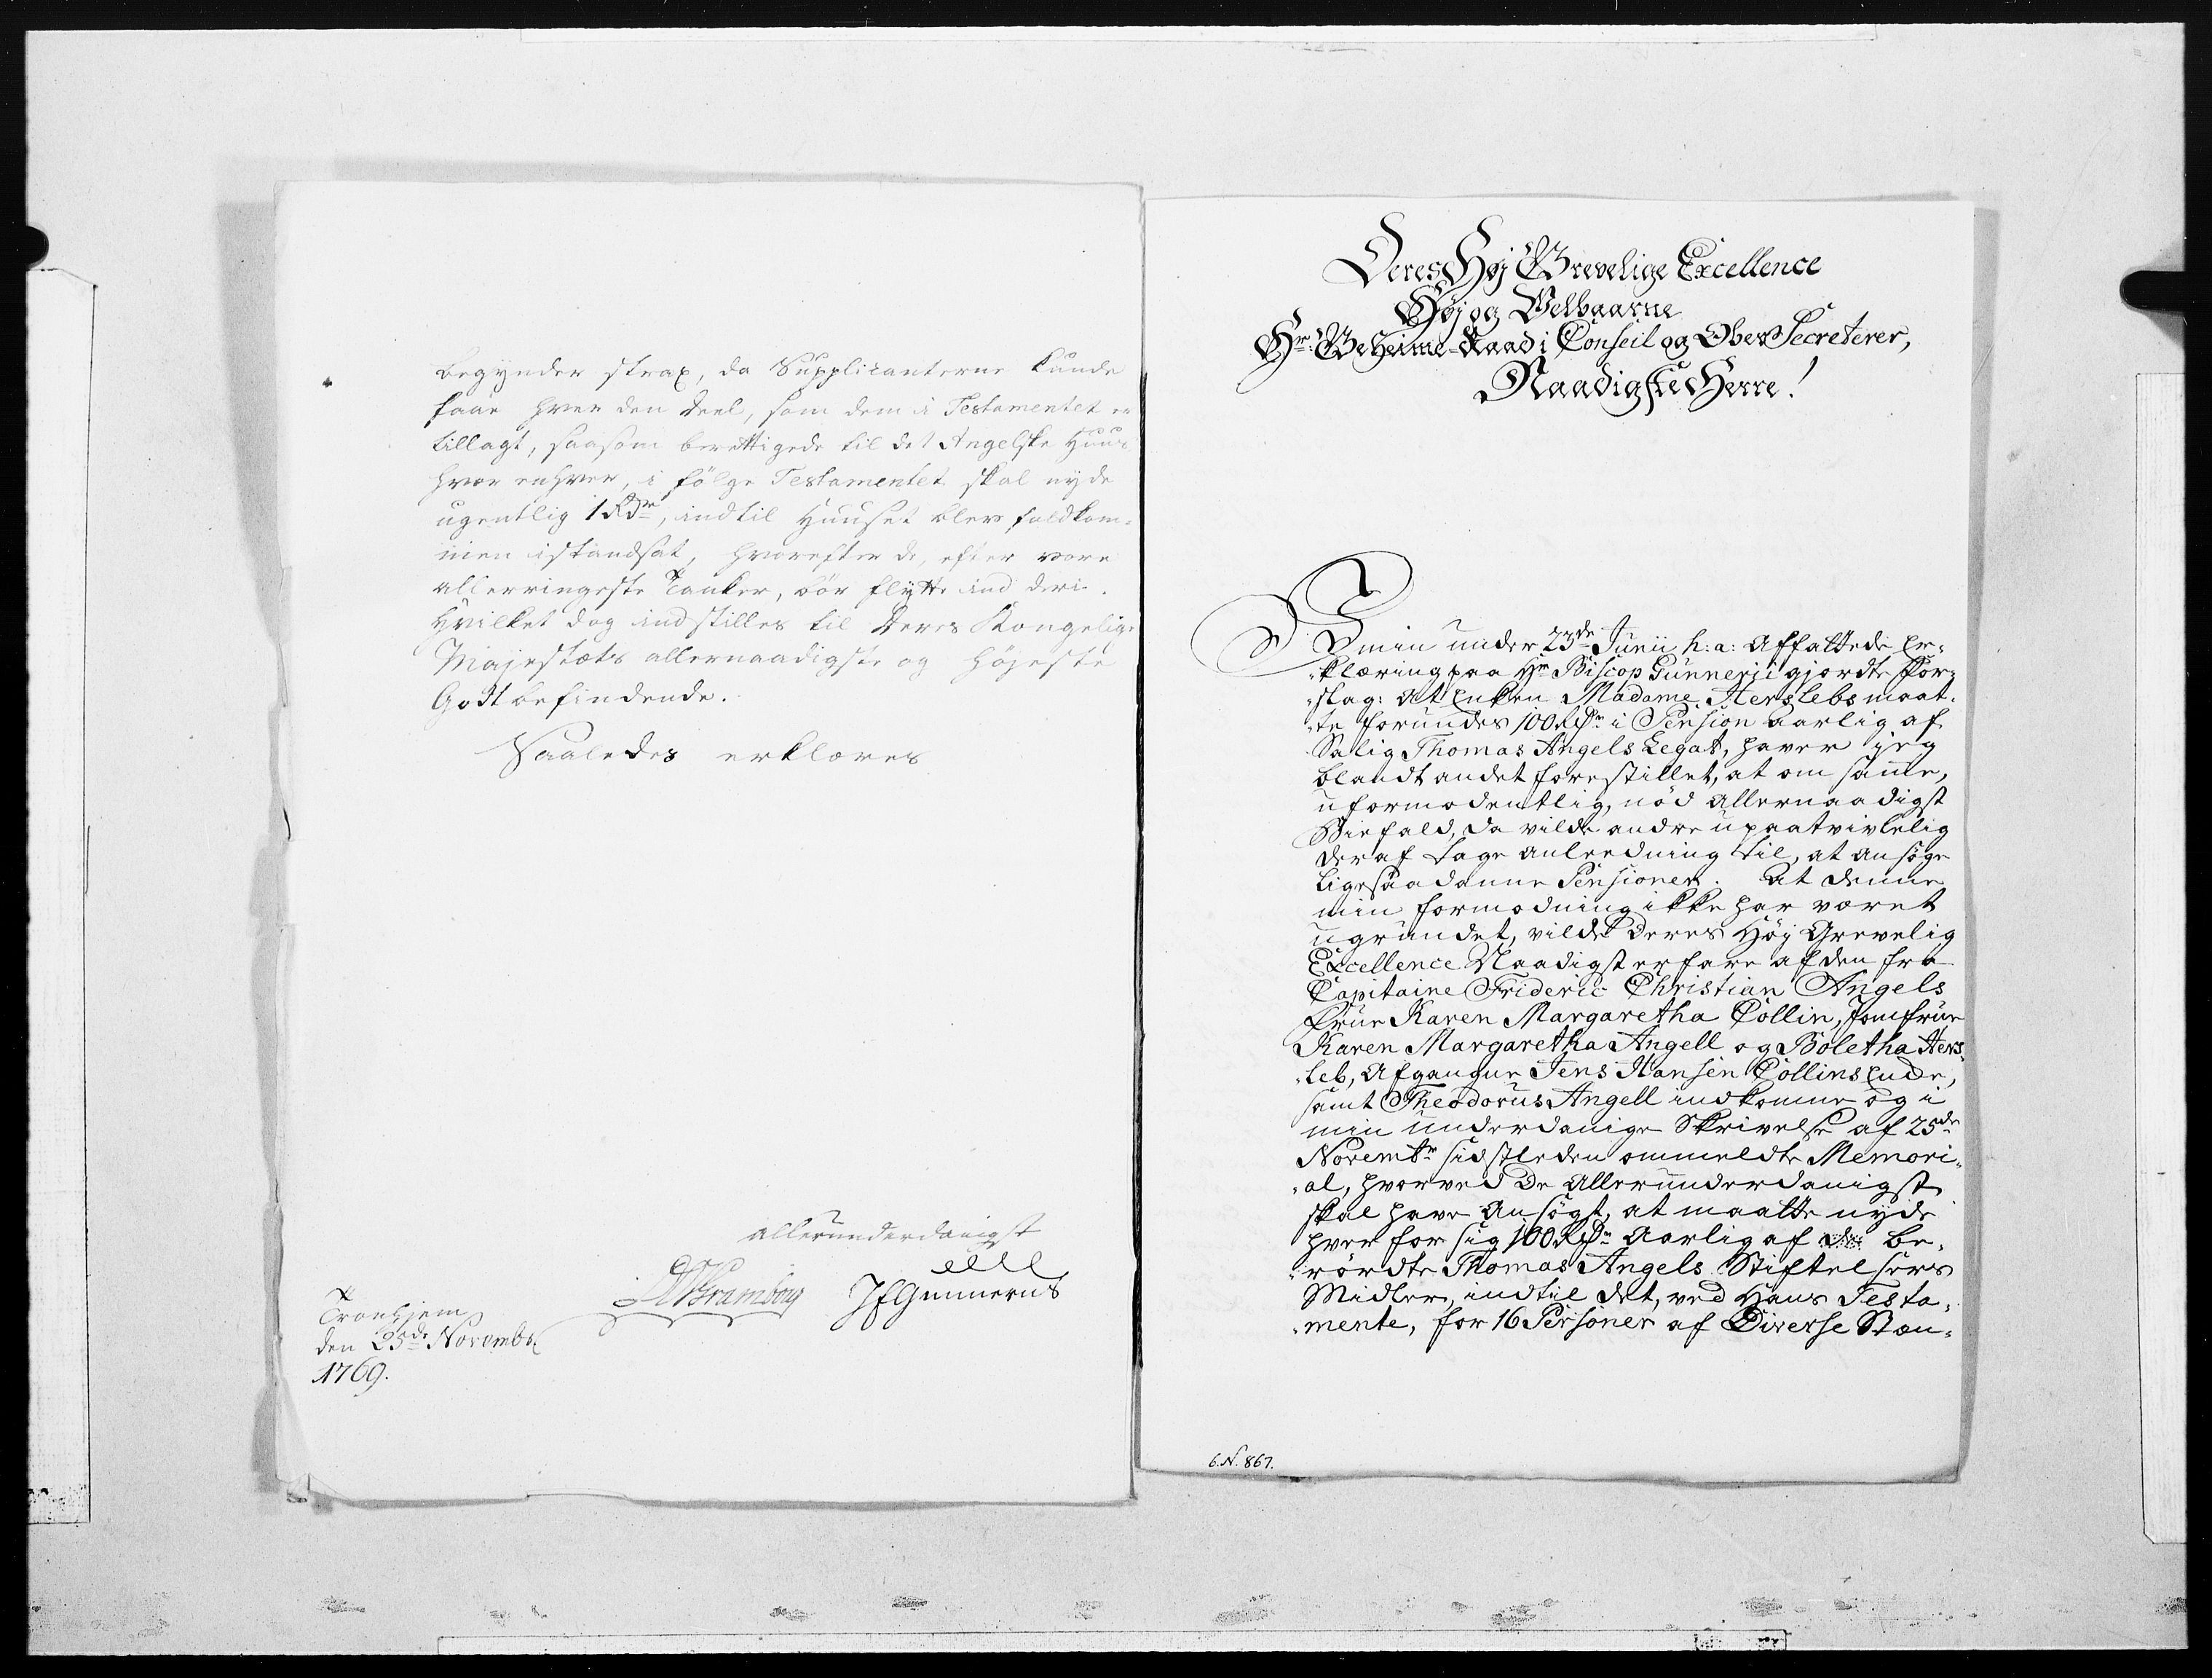 begynder strax, da Supplicanterne kunde
faae hver den Deel, som dem i Testamentet er
tillagt, saasom berettigede til det Angelske Huus
hvor enhver, i følge Testamentet skal nyde
ugentlig 1 Rdr, indtil Huuset blev fuldkom-
men istandsat, hvorefter de, efter vore
allerringeste Tanker, bör flytte ind deri.
Hvilket dog indstilles til Deres Kongelige
Majestæts allernaadigste og høieste
Godtbefindende.
Saaledes erklæres
allerunderdanigst
JFGunnerus
Tronhjem
den 25de Novembr
1769.
Deres Høj Grevelige Excellence
Høj og Velbaarne
Hr: Geheime-Raad i Conseil og Ober Secreterer,
Naadigste Herre!
I min under 23de Junii h: a: affattede Er-
klæring paa Hr Biscop Gunneri gjordte For-
slag: at Enken Madame Herslebs maat-
te forundes 100 Rdr i Pension aarlig af
Salig Thomas Angels Legat, haver jeg
blandt andet forestillet, at om samme,
uformodentlig, nöd allernaadigst
Biefald, da vilde andre upaatvivlelig
deraf tage anleedning til, at ansöge
ligesaadanne Pensioner. At denne
min formodning ikke har været
ugrundet, vilde Deres Høj Grevelig
Excellence Naadigst erfare af den fra
Capitaine Frideric Christian Angels
Frue Karen Margaretha Collin, Jomfrue
Karen Margaretha Angell og Boletha Hers-
leb, afgangne Jens Hansen Collins Enke,
samt Theodorus Angell indkomne og i
min underdanige Skrivelse af 25de
Novembr sidstleden ommeldte Memori-
al, hvorved de allerunderdanigst
skal have ansøgt, at maatte nyde
hver for sig 100 Rdr aarlig af be-
rørdte Thomas Angels Stiftelsers
Midler, indtil det, ved Hans Testa-
mente, for 16 Personer af Diverse Stæn-
6. N. 867.